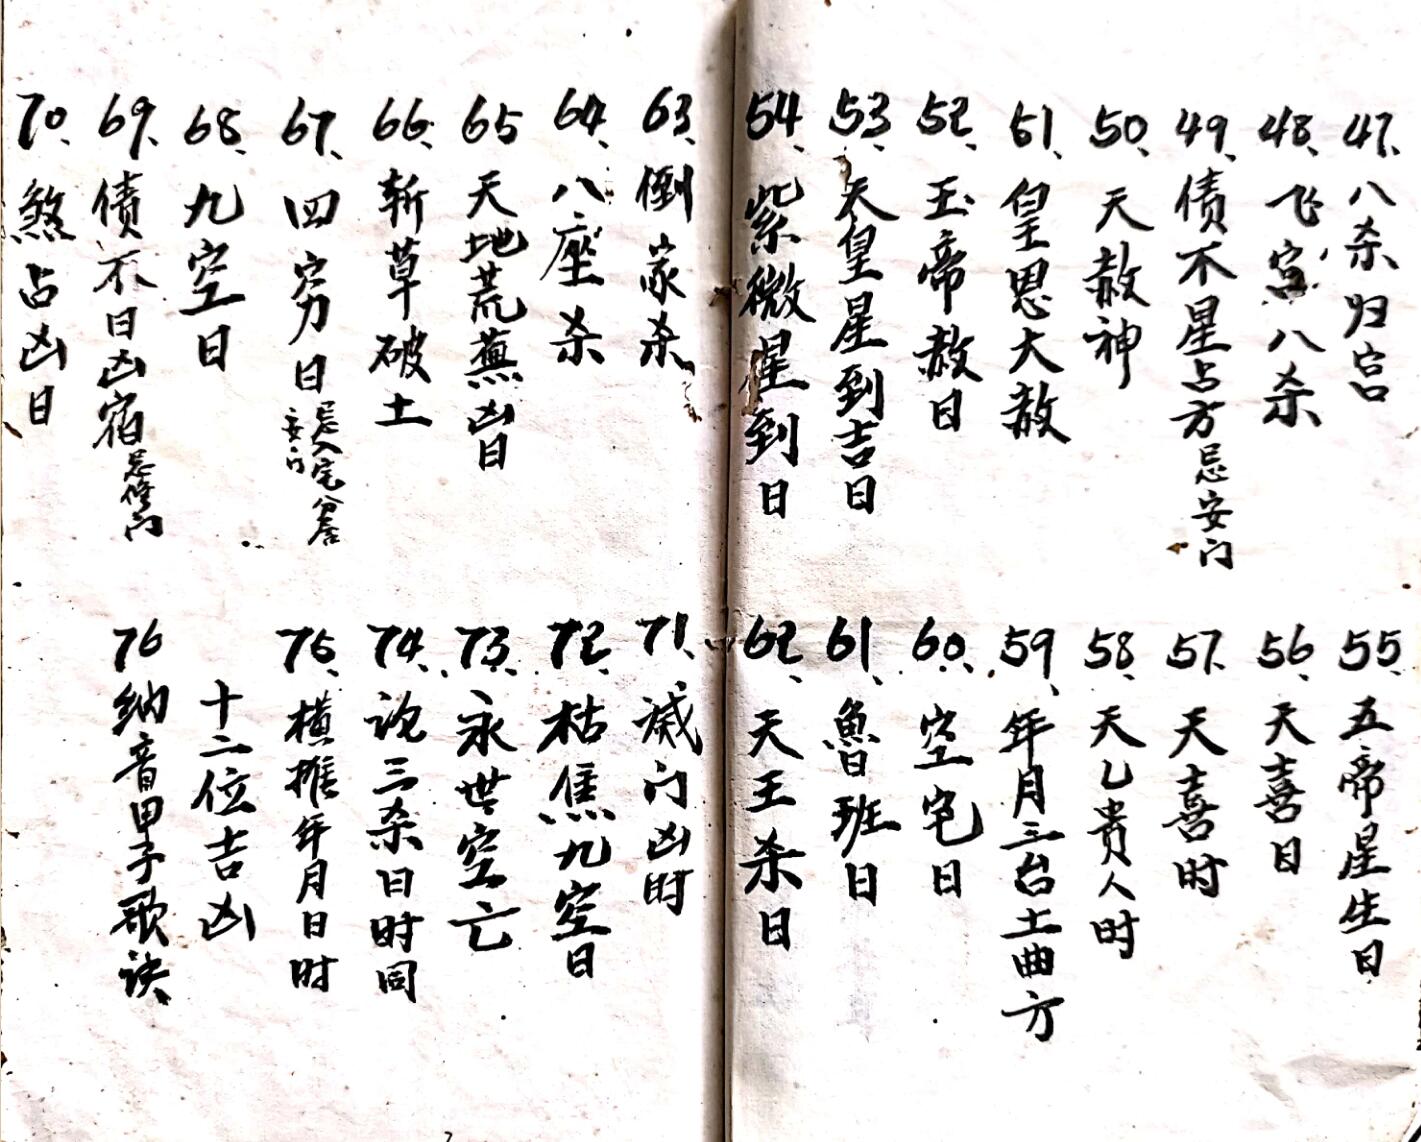 47、八杀归宫
48、飞宫八杀
49、债不星占方忌安门
50、天赦神
51、皇恩大赦
52、玉帝赦日
53、天皇星到吉日
54、紫微星到日
55、五帝星生日
56、天喜日
57、天喜时
58、天乙贵人时
59、年月三台土曲方
60、空宅日
61、魯班日
62、天王杀日
63、倒家杀
64、八座杀
65天地荒蕪凶日
66、斩草破土
67、四穷日忌入宅分居
安门
68、九空日
69、债不日凶宿忌修门
70、煞占凶日
71、灭门凶时
72、枯焦九空日
73、永世空亡
74、论三杀日时同
75、横推年月日时
十二位吉凶
76纳音甲子歌诀